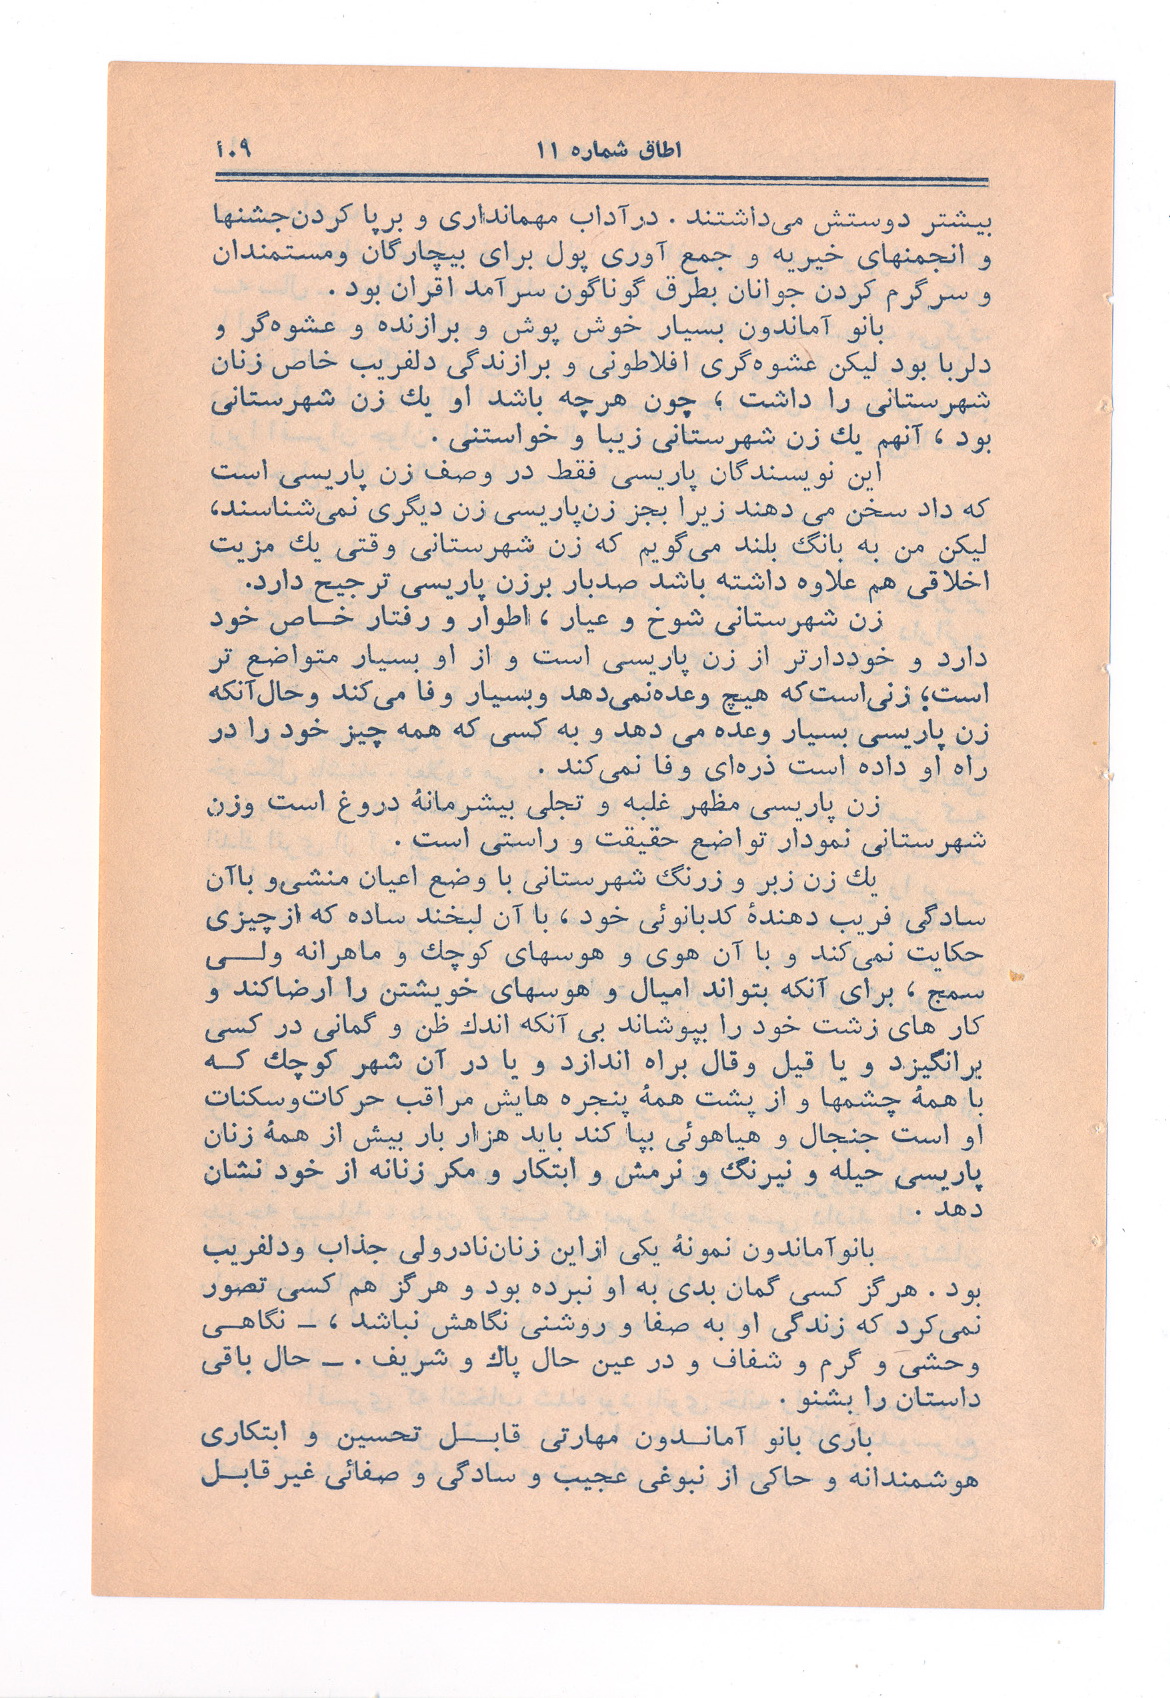 اطاق شماره ۱۱
۱۰۹
بیشتر دوستش می‌داشتند . درآداب مهمانداری و برپا کردن‌جشنها
و انجمنهای خیریه و جمع آوری پول برای بیچارگان ومستمندان
و سرگرم کردن جوانان بطرق گوناگون سرآمد اقران بود .
بانو آماندون بسیار خوش پوش و برازنده و عشوه‌گر و
دلربا بود لیکن عشوه‌گری افلاطونی و برازندگی دلفریب خاص زنان
شهرستانی را داشت ؛ چون هرچه باشد او یك زن شهرستانی
بود ، آنهم یك زن شهرستانی زیبا و خواستنی .
این نویسندگان پاریسی فقط در وصف زن پاریسی است
که داد سخن می دهند زیرا بجز زن‌پاریسی زن دیگری نمی‌شناسند،
لیکن من به بانگ بلند می‌گویم که زن شهرستانی وقتی یك مزیت
اخلاقی هم علاوه داشته باشد صدبار برزن پاریسی ترجیح دارد.
زن شهرستانی شوخ و عیار ، اطوار و رفتار خـاص خود
دارد و خوددارتر از زن پاریسی است و از او بسیار متواضع تر
است؛ زنی‌است‌که هیچ وعده‌نمی‌دهد وبسیار وفا می‌کند وحال‌آنکه
زن پاریسی بسیار وعده می دهد و به کسی که همه چیز خود را در
راه او داده است ذره‌ای وفا نمی‌کند .
زن پاریسی مظهر غلبه و تجلی بیشرمانۀ دروغ است وزن
شهرستانی نمودار تواضع حقیقت و راستی است .
یك زن زبر و زرنگ شهرستانی با وضع اعیان منشی‌و باآن
سادگی فریب دهندۀ کدبانوئی خود ، با آن لبخند ساده که ازچیزی
حکایت نمی‌کند و با آن هوی و هوسهای کوچك و ماهرانه ولـی
سمج ، برای آنکه بتواند امیال و هوسهای خویشتن را ارضاکند و
کار های زشت خود را بپوشاند بی آنکه اندك ظن و گمانی در کسی
برانگیزد و یا قیل وقال براه اندازد و یا در آن شهر کوچك کـه
با همۀ چشمها و از پشت همۀ پنجره هایش مراقب حرکات‌وسکنات
او است جنجال و هیاهوئی بپا کند باید هزار بار بیش از همۀ زنان
پاریسی حیله و نیرنگ و نرمش و ابتکار و مکر زنانه از خود نشان
دهد .
بانوآماندون نمونۀ یکی ازاین زنان‌نادرولی جذاب ودلفریب
بود . هرگز کسی گمان بدی به او نبرده بود و هرگز هم کسی تصور
نمی‌کرد که زندگی او به صفا و روشنی نگاهش نباشد ، ــ نگاهـی
وحشی و گرم و شفاف و در عین حال پاك و شریف . ــ حال باقی
داستان را بشنو .
باری بانو آمانـدون مهارتی قابـل تحسین و ابتکاری
هوشمندانه و حاکی از نبوغی عجیب و سادگی و صفائی غیرقابـل